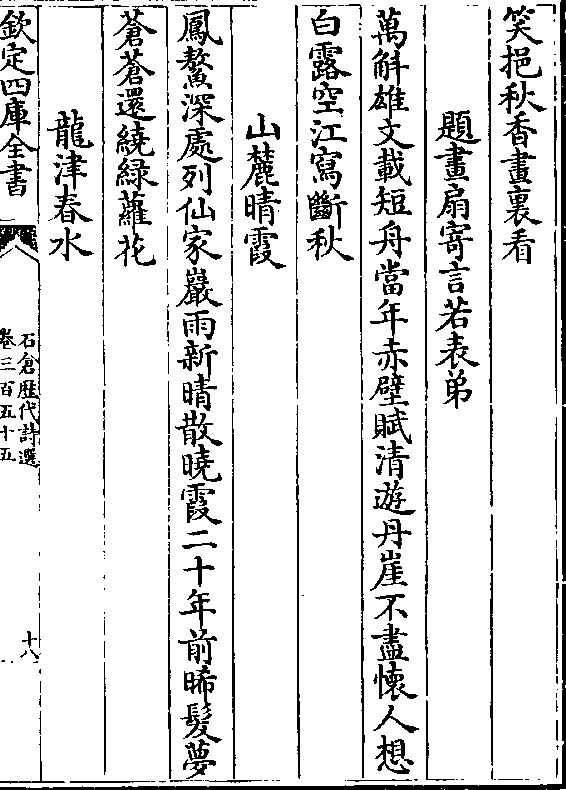 笑挹秋香畫裏看
題畫扇寄言若表弟
萬斛雄文載短舟當年赤壁賦清遊丹崖不盡懷人想
白露空江寫斷秋
山麓晴霞
鳳鰲深處列仙家巖雨新晴散曉霞二十年前晞髮夢
蒼蒼還繞綠蘿花
龍津春水
欽定四庫全書
石倉歷代詩選
卷三百五十五
十八